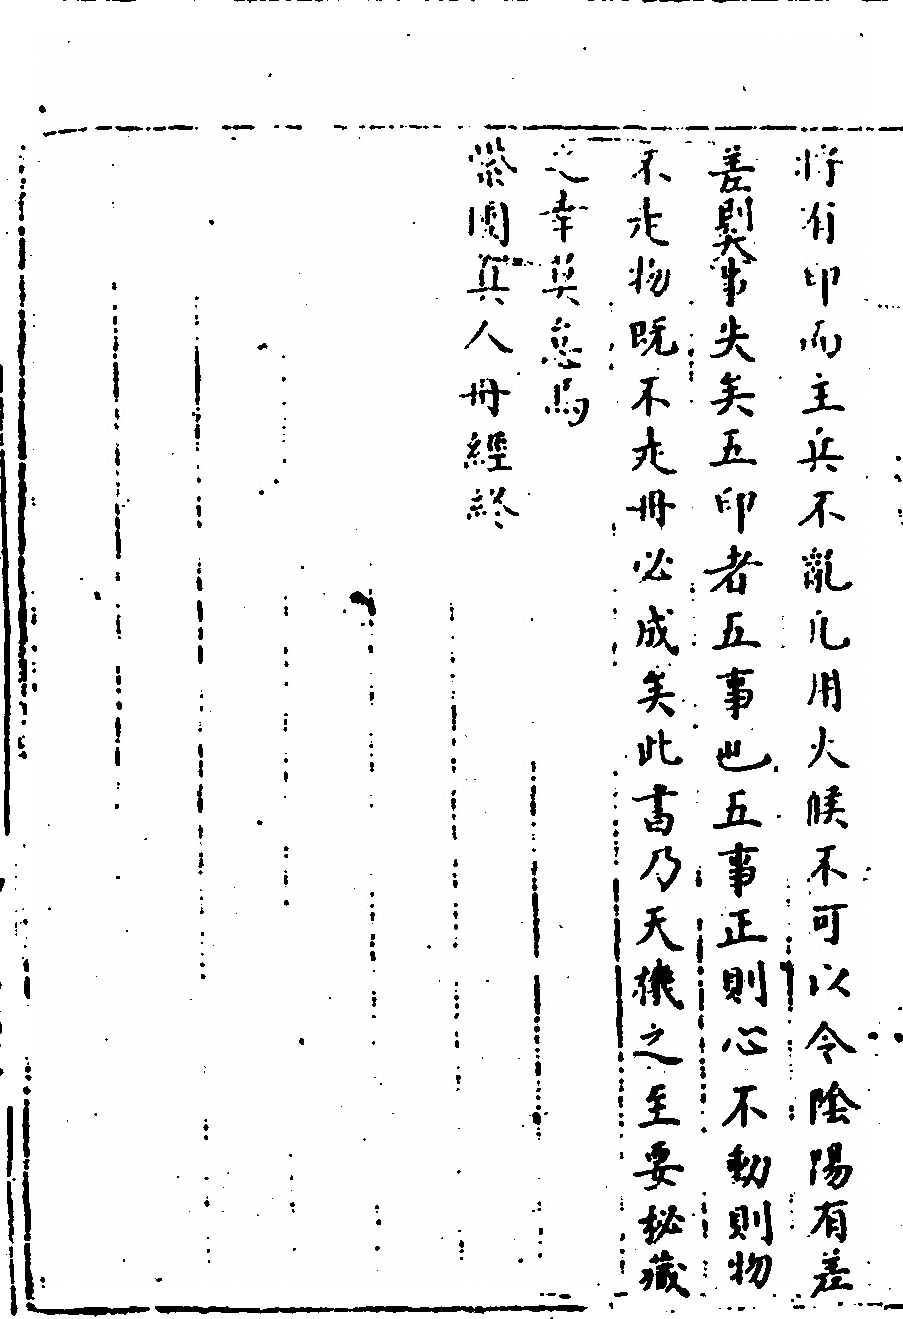 將有印而主兵不亂凡用火候不可以令陰陽有差
差則大事失矣五印者五事也五事正則心不動則物
不走物既不走丹必成矣此書乃天機之至要秘藏
之幸莫忽焉
紫團真人丹經終